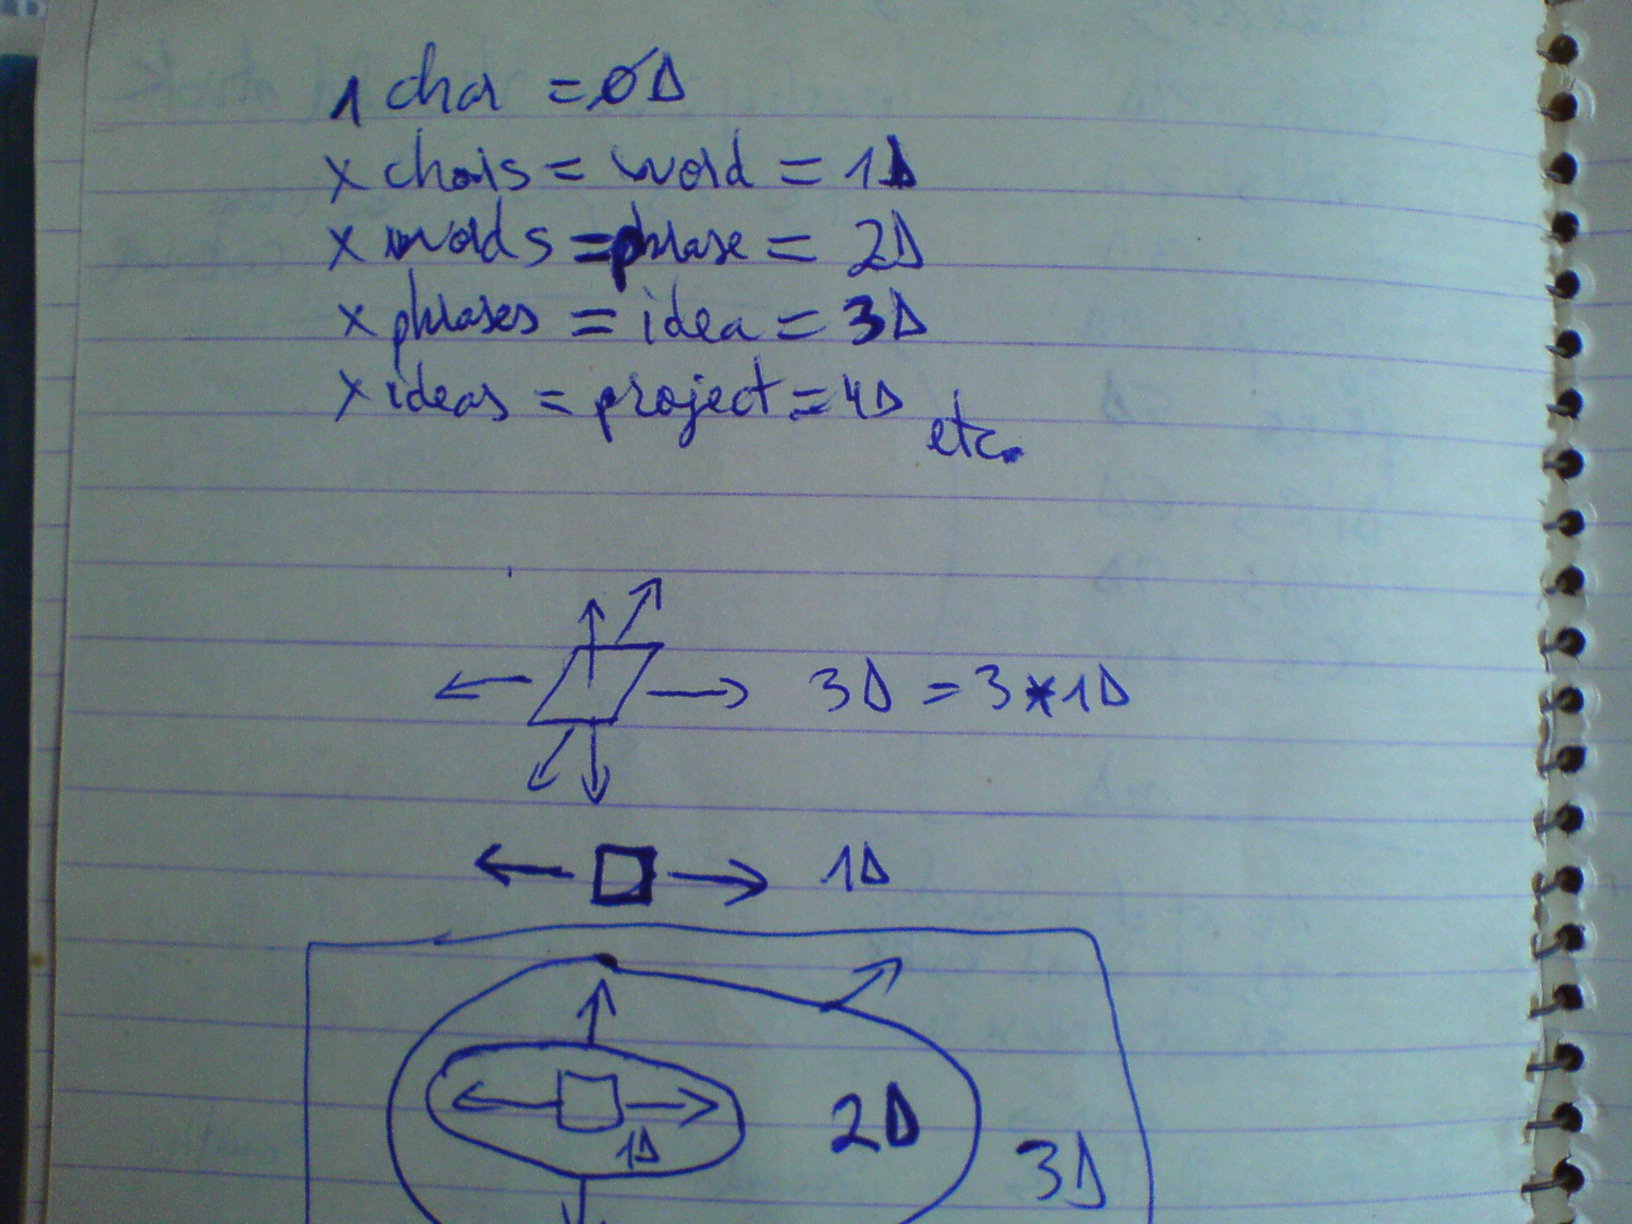 1 char = 0D
x chars = word = 1D
x words = phrase = 2D
x phrases = idea = 3D
x ideas = project = 4D
etc.
3D = 3*1D
1D
1D
2D
3D